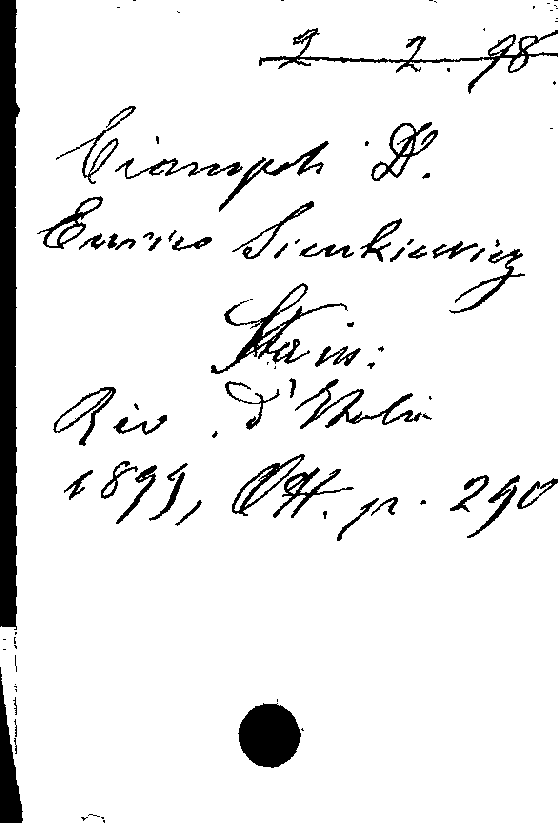 2 2. 98
Ciampoli D.
Enrico Sienkiewicz
Sta in:
Riv. d'Italia
1899, Ott. p. 290